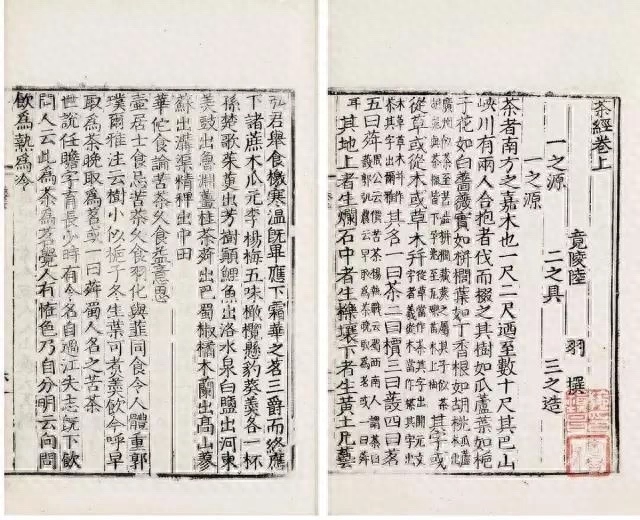 茶經卷上
竟陵陸 羽 撰
一之源 二之具 三之造
一之源
茶者南方之嘉木也一尺二尺迺至數十尺其巴山
峽川有兩人合抱者伐而掇之其樹如瓜蘆葉如梔
子花如白薔薇實如栟櫚葉如丁香根如胡桃瓜蘆木
出廣州似茶至苦澀栟櫚蒲葵之屬其子似茶胡桃與茶根皆下孕兆至瓦礫苗木上抽其字或
從草或從木或草木并從草當作茶其字出開元文字音義從木當作
木草草木并作荼其字出爾雅其名一曰茶二曰檟三曰蔎四曰茗
五曰荈周公云檟苦荼楊執戟云蜀西南人謂茶曰蔎郭弘農云早取為茶晚取為茗或一曰荈
耳其地上者生爛石中者生櫟壤下者生黃土凡藝
弘君舉食檄寒溫既畢應下霜華之茗三爵而終應
下諸蔗木瓜元李楊梅五味橄欖懸豹葵羹各一杯
孫楚歌茱萸出芳樹顛鯉魚出洛水泉白鹽出河東
美豉出魯淵薑桂茶荈出巴蜀椒橘木蘭出高山蓼
蘇出溝渠精稗出中田
華佗食論苦茶久食益意思
壺居士食忌苦茶久食羽化與韭同食令人體重郭
璞爾雅注云樹小似梔子冬生葉可煮羹飲今呼早
取爲茶晚取爲茗或一曰荈蜀人名之苦茶
世說任瞻字育長少時有令名自過江失志既下飲
問人云此爲茶爲茗覺人有怪色乃自分明云向問
飲爲熱爲冷